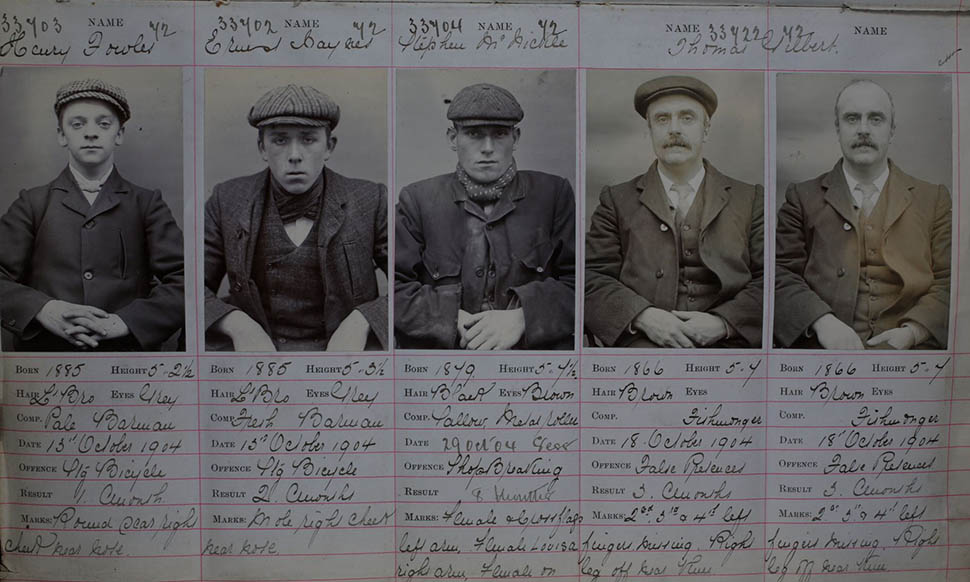 33703 NAME 42
Henry Fowler
33702 NAME 42
Ernest Haynes
33704 NAME 42
Stephen McNickle
NAME 33722 42 NAME
Thomas Gilbert.
BORN 1885 HEIGHT 5-2½
HAIR Lt Bro EYES Grey
COMP. Pale Barman
DATE 13th October 1904
OFFENCE Stg Bicycle
RESULT 1. Month
MARKS: Round scar right
cheek near nose.
BORN 1885 HEIGHT 5-3½
HAIR Lt Bro EYES Grey
COMP. Fresh Barman
DATE 13th October 1904
OFFENCE Stg Bicycle
RESULT 2. Months
MARKS: Mole right cheek
near nose.
BORN 1879 HEIGHT 5-4½
HAIR Black EYES Brown
COMP. Sallow, Metal roller
DATE 29 Oct 04
OFFENCE Shop Breaking
RESULT 8 months
MARKS: Female & Cross flags
left arm, Female Louisa
right arm, Female on
BORN 1866 HEIGHT 5-4
HAIR Brown EYES
COMP. Fishmonger
DATE 18. October 1904
OFFENCE False Pretences
RESULT 3. Months
MARKS: 2nd. 3rd & 4th left
fingers missing. Right
leg off near knee.
BORN 1866 HEIGHT 5-4
HAIR Brown EYES
COMP. Fishmonger
DATE 18th October 1904
OFFENCE False Pretences
RESULT 3. Months
MARKS: 2nd 3rd & 4th left
fingers missing, Right
leg off near knee.